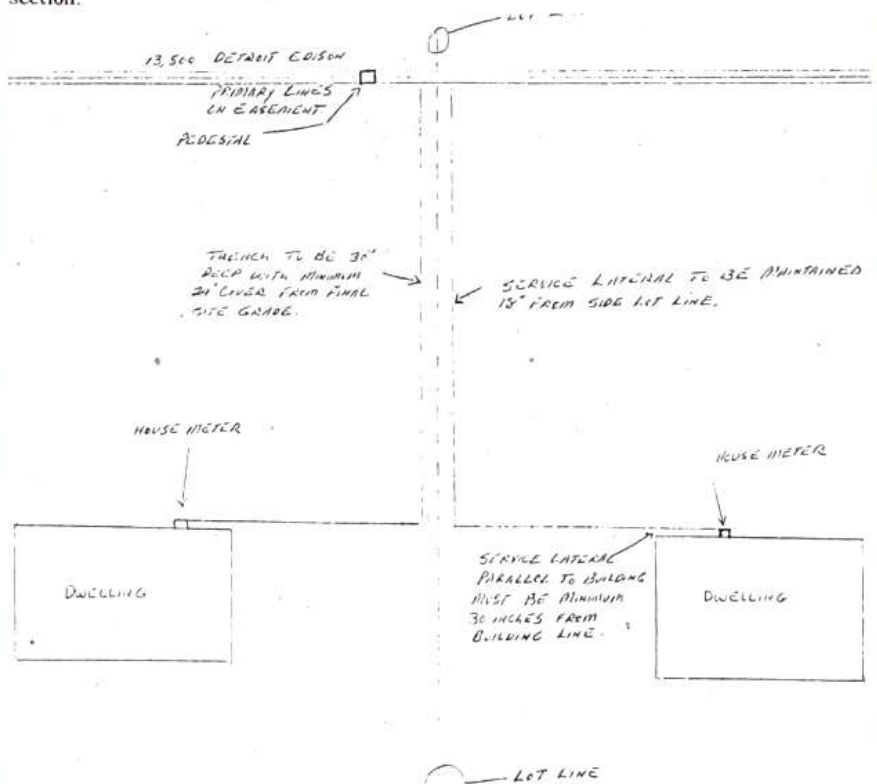 section.
LOT
13,500 DETROIT EDISON
PRIMARY LINES
ON EASEMENT
PEDESTAL
TRENCH TO BE 30"
DEEP WITH MINIMUM
24" COVER FROM FINAL
SITE GRADE.
SERVICE LATERAL TO BE MAINTAINED
18" FROM SIDE LOT LINE.
HOUSE METER
HOUSE METER
SERVICE LATERAL
PARALLEL TO BUILDING
MUST BE MINIMUM
30 INCHES FROM
BUILDING LINE.
DWELLING
DWELLING
LOT LINE